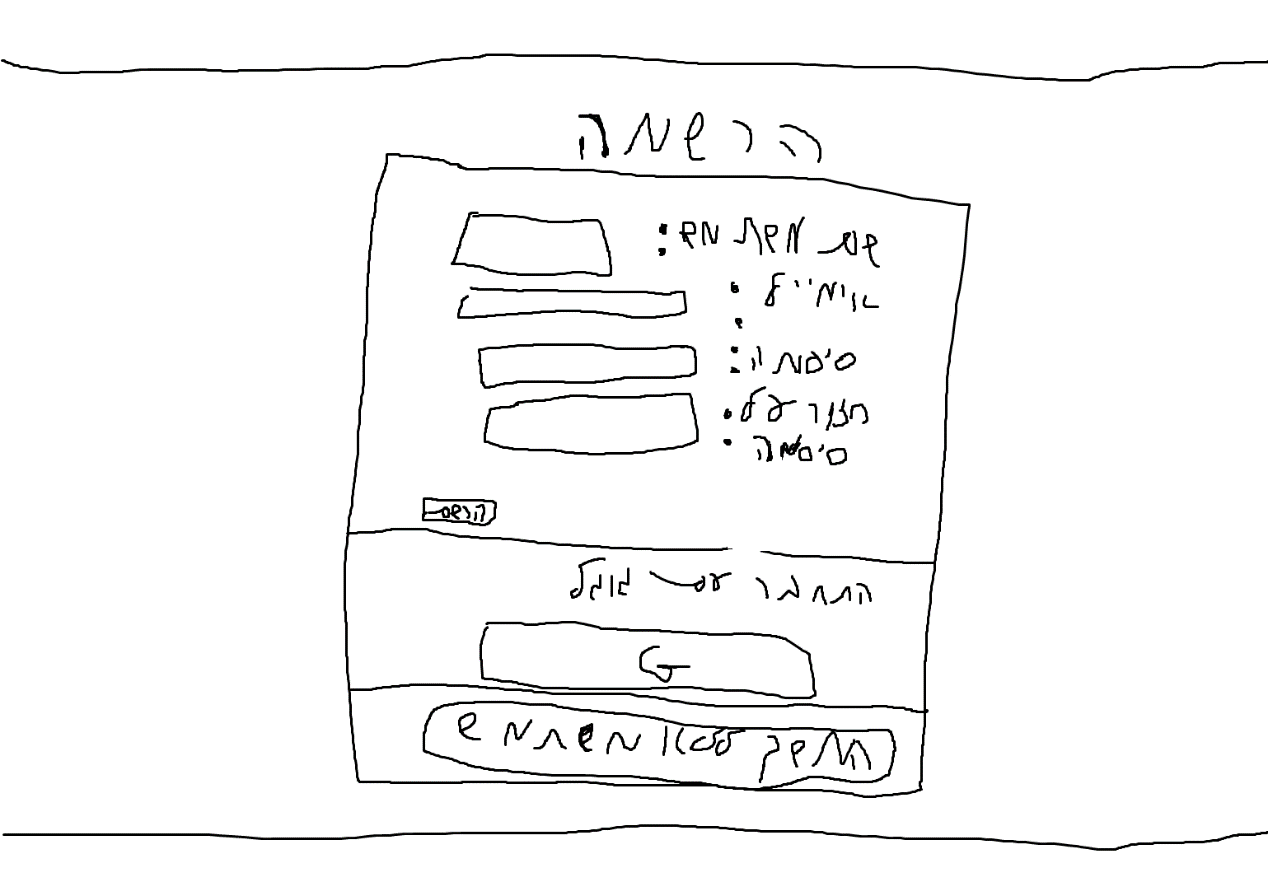 הרשמה
שם משתמש:
אימייל:
סיסמה:
חזור על
סיסמה:
הרשם
התחבר עם גוגל
G
המשך ללא משתמש